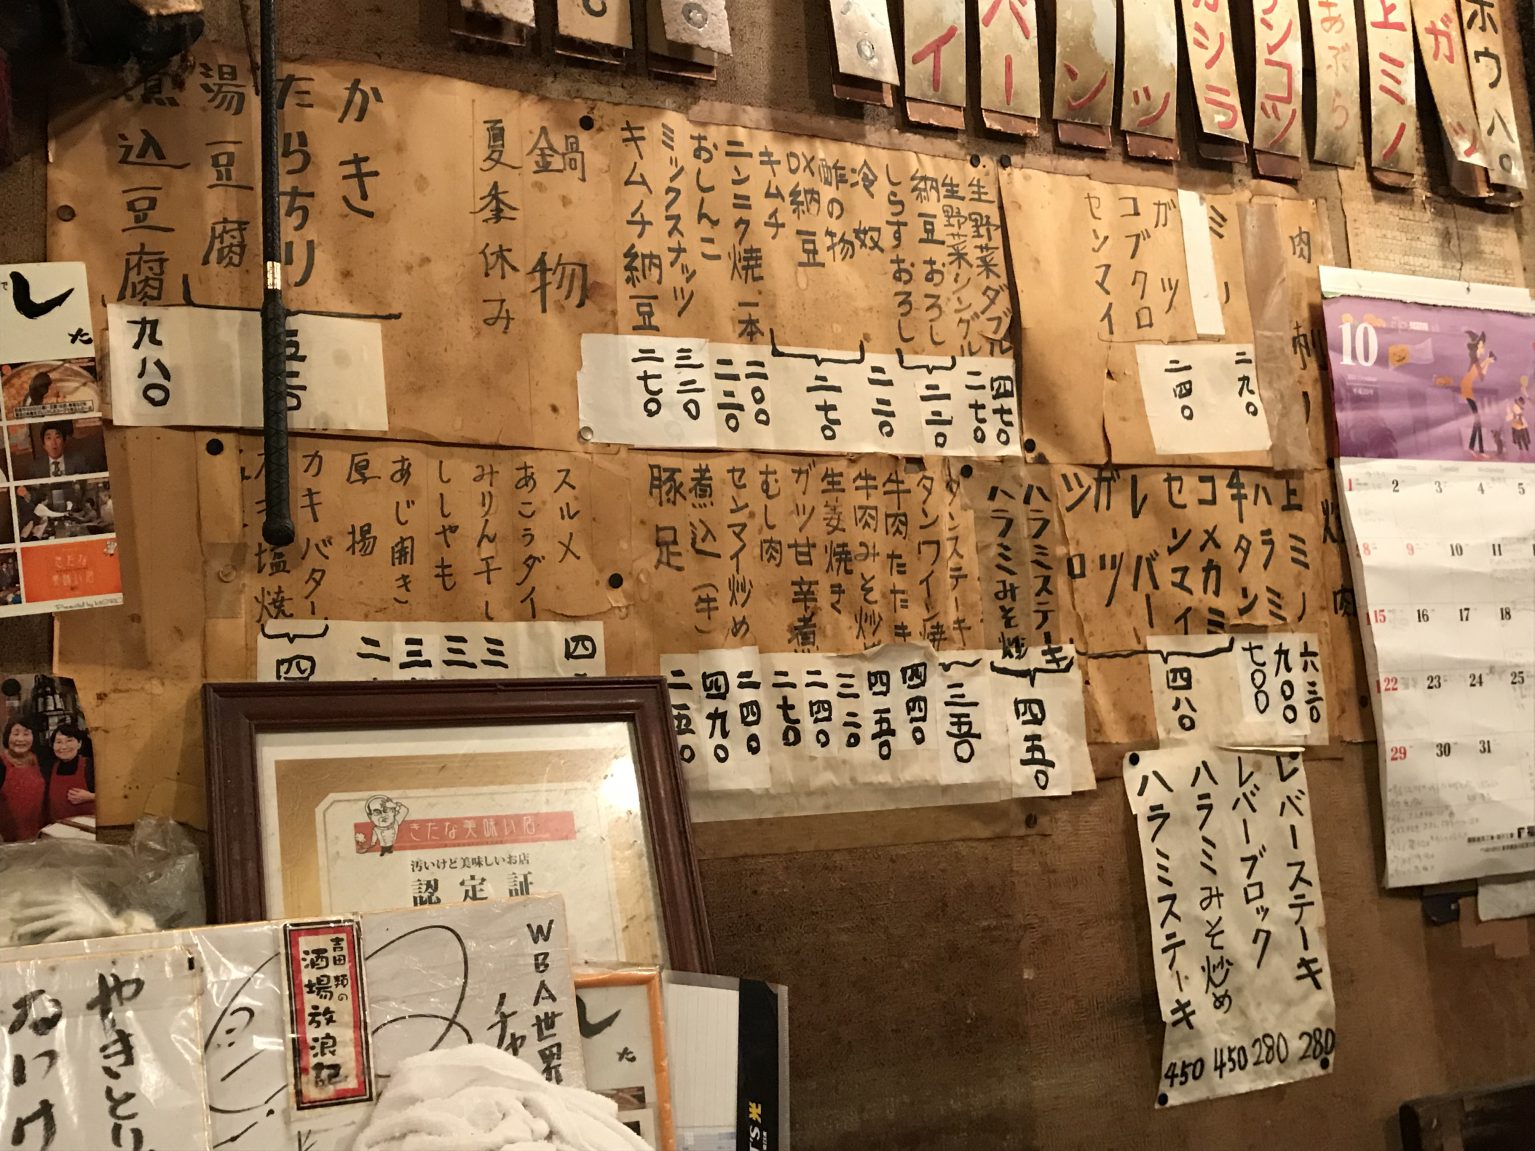 ホウ八〇
ガツ
上ミノ
あぶら
ナンコツ
カシラ
ツ
ン
バー
イ
肉刺
ミノ
ガツ
コブクロ
センマイ
二九〇
二四〇
生野菜ダブル
生野菜シングル
納豆おろし
しらすおろし
冷奴
酢の物
DX納豆
キムチ
ニンニク焼一本
おしんこ
ミックスナッツ
キムチ納豆
四七〇
二七〇
二二〇
二二〇
二七〇
二〇〇
二二〇
三二〇
二七〇
鍋物
夏季休み
かき
たらちり
湯豆腐
煮込豆腐
五三〇
九八〇
炒肉
上ミノ
ハラミ
牛タン
コメカミ
センマイ
レバー
ガツ
シロ
六三〇
九〇〇
七〇〇
四八〇
ハラミステーキ
ハラミみそ炒
タンステーキ
タンワイン焼
牛肉たたき
牛肉みそ炒め
生姜焼き
ガツ甘辛煮
むし肉
センマイ炒め
煮込(牛)
豚足
四五〇
三五〇
四四〇
四五〇
三二〇
二四〇
二七〇
二四〇
四九〇
二五〇
スルメ
あこうダイ
みりん干し
ししゃも
あじ開き
厚揚
カキバター
塩焼
四
三
三
三
二
四
レバーステーキ 280
レバーブロック 280
ハラミみそ炒め 450
ハラミステーキ 450
10
1 2 3 4 5
8 9 10 11
15 16 17 18
22 23 24 25
29 30 31
きたな美味い店
汚いけど美味しいお店
認定証
WBA世界
チャ
吉田類の
酒場放浪記
やきとり
した
きたな
美味い店
した